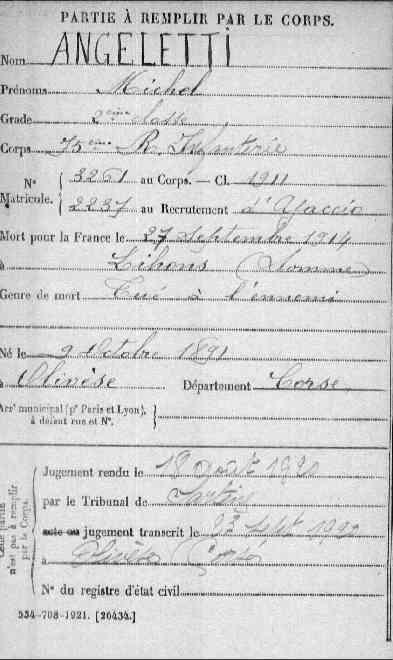 PARTIE À REMPLIR PAR LE CORPS.
Nom ANGELETTI
Prénoms Michel
Grade 2ème classe
Corps 75ème R. Infanterie
N° Matricule. { 3261 au Corps. — Cl. 1911
{ 2237 au Recrutement d'Yaccio
Mort pour la France le 27 Septembre 1914
à Lihons (Somme)
Genre de mort Tué à l'ennemi
Né le 9 Octobre 1891
à Olivèse Département Corse
Arr' municipal (p' Paris et Lyon), à défaut rue et N°. }
Cette partie n'est pas à remplir par le Corps.
Jugement rendu le 18 août 1920
par le Tribunal de Sartène
acte ou jugement transcrit le Sept 1920
à Olivèse Corse
N° du registre d'état civil
534-708-1921. [26434.]